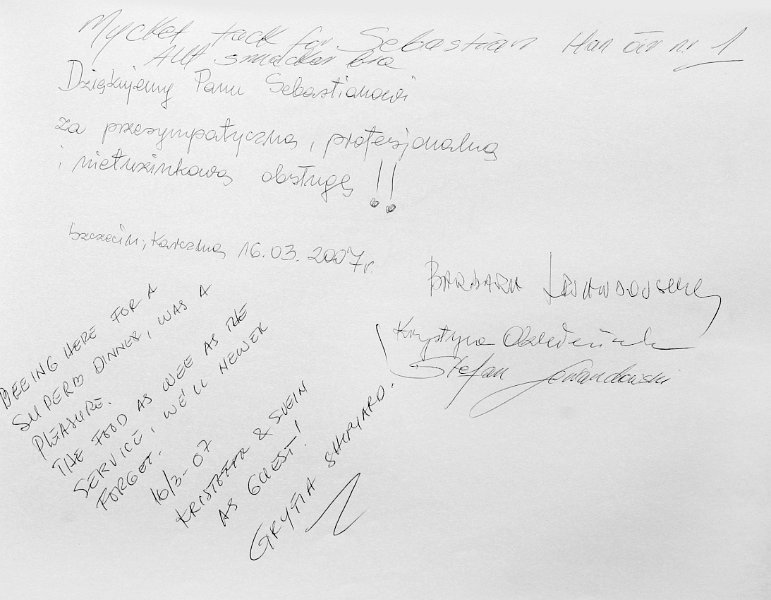 Mycket tack för Sebastian Han är nr 1
Allt smackar bra
Dziękujemy Panu Sebastianowi
za przesympatyczną, profesjonalną
i nietuzinkową obsługę !!
Szczecin, Karczma, 16.03.2007r.
BARBARA LEWANDOWSKA
Krystyna
Stefan Lewandowski
BEEING HERE FOR A
SUPERB DINNER, WAS A
PLEASURE.
THE FOOD AS WEE AS THE
SERVICE, WE'LL NEWER
FORGET.
16/3-07
KRISTOFFR & SVEIN
AS GUEST!
GRYFIA SHIPYARD.